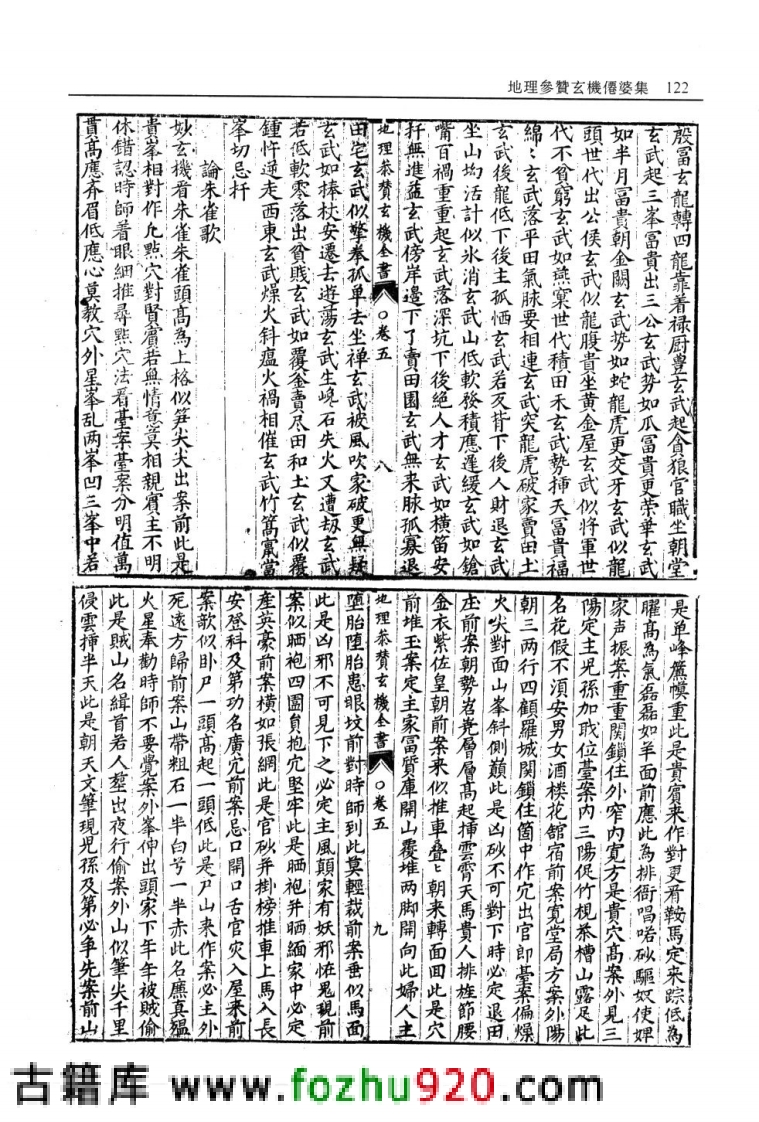 地理參贊玄機僊婆集 122
殷富玄龍轉四龍靠着禄厨豊玄武起貪狼官職坐朝堂
玄武起三峯冨貴出三公玄武势如瓜冨貴更荣華玄武
如半月冨貴朝金闕玄武势如蛇龍虎更交牙玄武似龍
頭世代出公侯玄武似龍腹貴坐黄金屋玄武似將軍世
代不貧窮玄武如燕窠世代積田禾玄武势揷天冨貴福
綿〻玄武落平田氣脉要相連玄武突龍虎破家賣田土
玄武後龍低下後主孤恓玄武若反背下後人財退玄武
坐山均活計似氷消玄武山低軟務積應遲緩玄武如鎗
嘴百禍重重起玄武落深坑下後絶人才玄武如横笛安
扦無進益玄武傍岸邉下了賣田園玄武無来脉孤寡退
地理叅贊玄機全書 ○卷五 八
田宅玄武似擎拳孤单去坐禅玄武被風吹家破更無疑
玄武如捧杖安遷去遊蕩玄武生峣石失火又遭刼玄武
若低軟零落出貧賎玄武如覆釜賣尽田和土玄武似覆
鍾忤逆走西東玄武燥火斜瘟火禍相催玄武竹篙
峯切忌扦
論朱雀歌
妙玄機看朱雀朱雀頭高為上格似笋尖尖出案前此是
貴峯相對作㐾點穴對賢賔若無情意莫相親賔主不明
休錯認時師着眼細推尋點穴法看臺案臺案分明值萬
貫高應齐眉低應心莫教穴外星峯乱两峯凹三峯中若
是单峰簾幙重此是貴賓来作對更看鞍馬定来踪低為
曜高為氣磊磊如羊面前應此為排衙唱喏砂驅奴使婢
家声振案重重関鎖住外窄内寬方是貴穴高案外見三
陽定主児孫加戝位臺案内三陽促竹梘茶槽山露足此
名花假不湏安男女酒楼花舘宿前案寛堂局方案外陽
朝三两行四顧羅城関鎖住箇中作宂出官郎臺案偏燥
火尖對面山峯斜側巔此是凶砂不可對下時必定退田
庄前案朝勢岩尭層層高起揷雲霄天馬貴人排旌節腰
金衣紫佐皇朝前案来似推車叠〻朝来轉面囬此是穴
前堆玉案定主家冨質庫開山覆堆两脚開向此婦人主
地理叅贊玄機全書 ○卷五 九
堕胎堕胎患眼坟前對時師到此莫輕裁前案垂似馬面
此是凶邪不可見下之必定主風顛家有妖邪恠鬼現前
案似晒袍四圍負抱宂堅牢此是晒袍并晒緬家中必定
産英豪前案横如張網此是官砂并掛榜推車上馬入長
安登科及第功名廣宂前案忌口開口舌官灾入屋来前
案歌似卧尸一頭高起一頭低此是尸山来作案必主外
死逺方歸前案山帶粗石一半白兮一半赤此名廉真瘟
火星奉勸時師不要覺案外峯伸出頭家下年年被賊偷
此是賊山名緝首若人塟出夜行偷案外山似筆尖千里
侵雲揷半天此是朝天文筆現児孫及第必争先案前山
古籍库 www.fozhu920.com